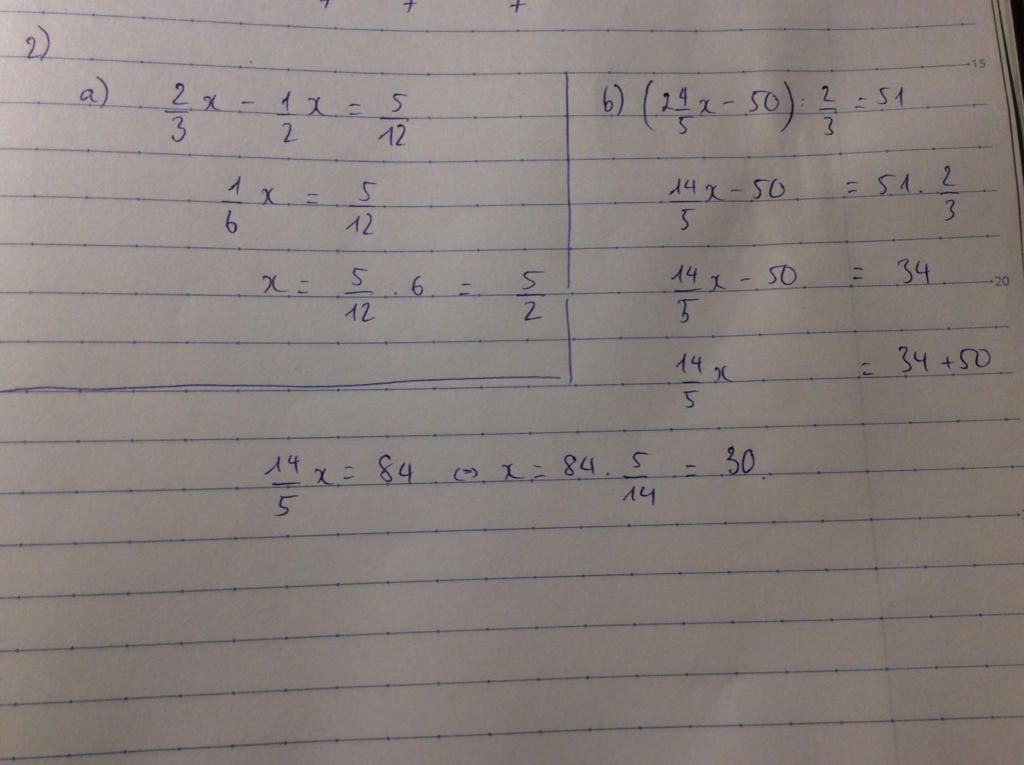 2)
a) 2/3 x - 1/2 x = 5/12
1/6 x = 5/12
x = 5/12 . 6 = 5/2
b) (2 4/5 x - 50) : 2/3 = 51
14/5 x - 50 = 51 . 2/3
14/5 x - 50 = 34
14/5 x = 34 + 50
14/5 x = 84 <=> x = 84 . 5/14 = 30.
15
20